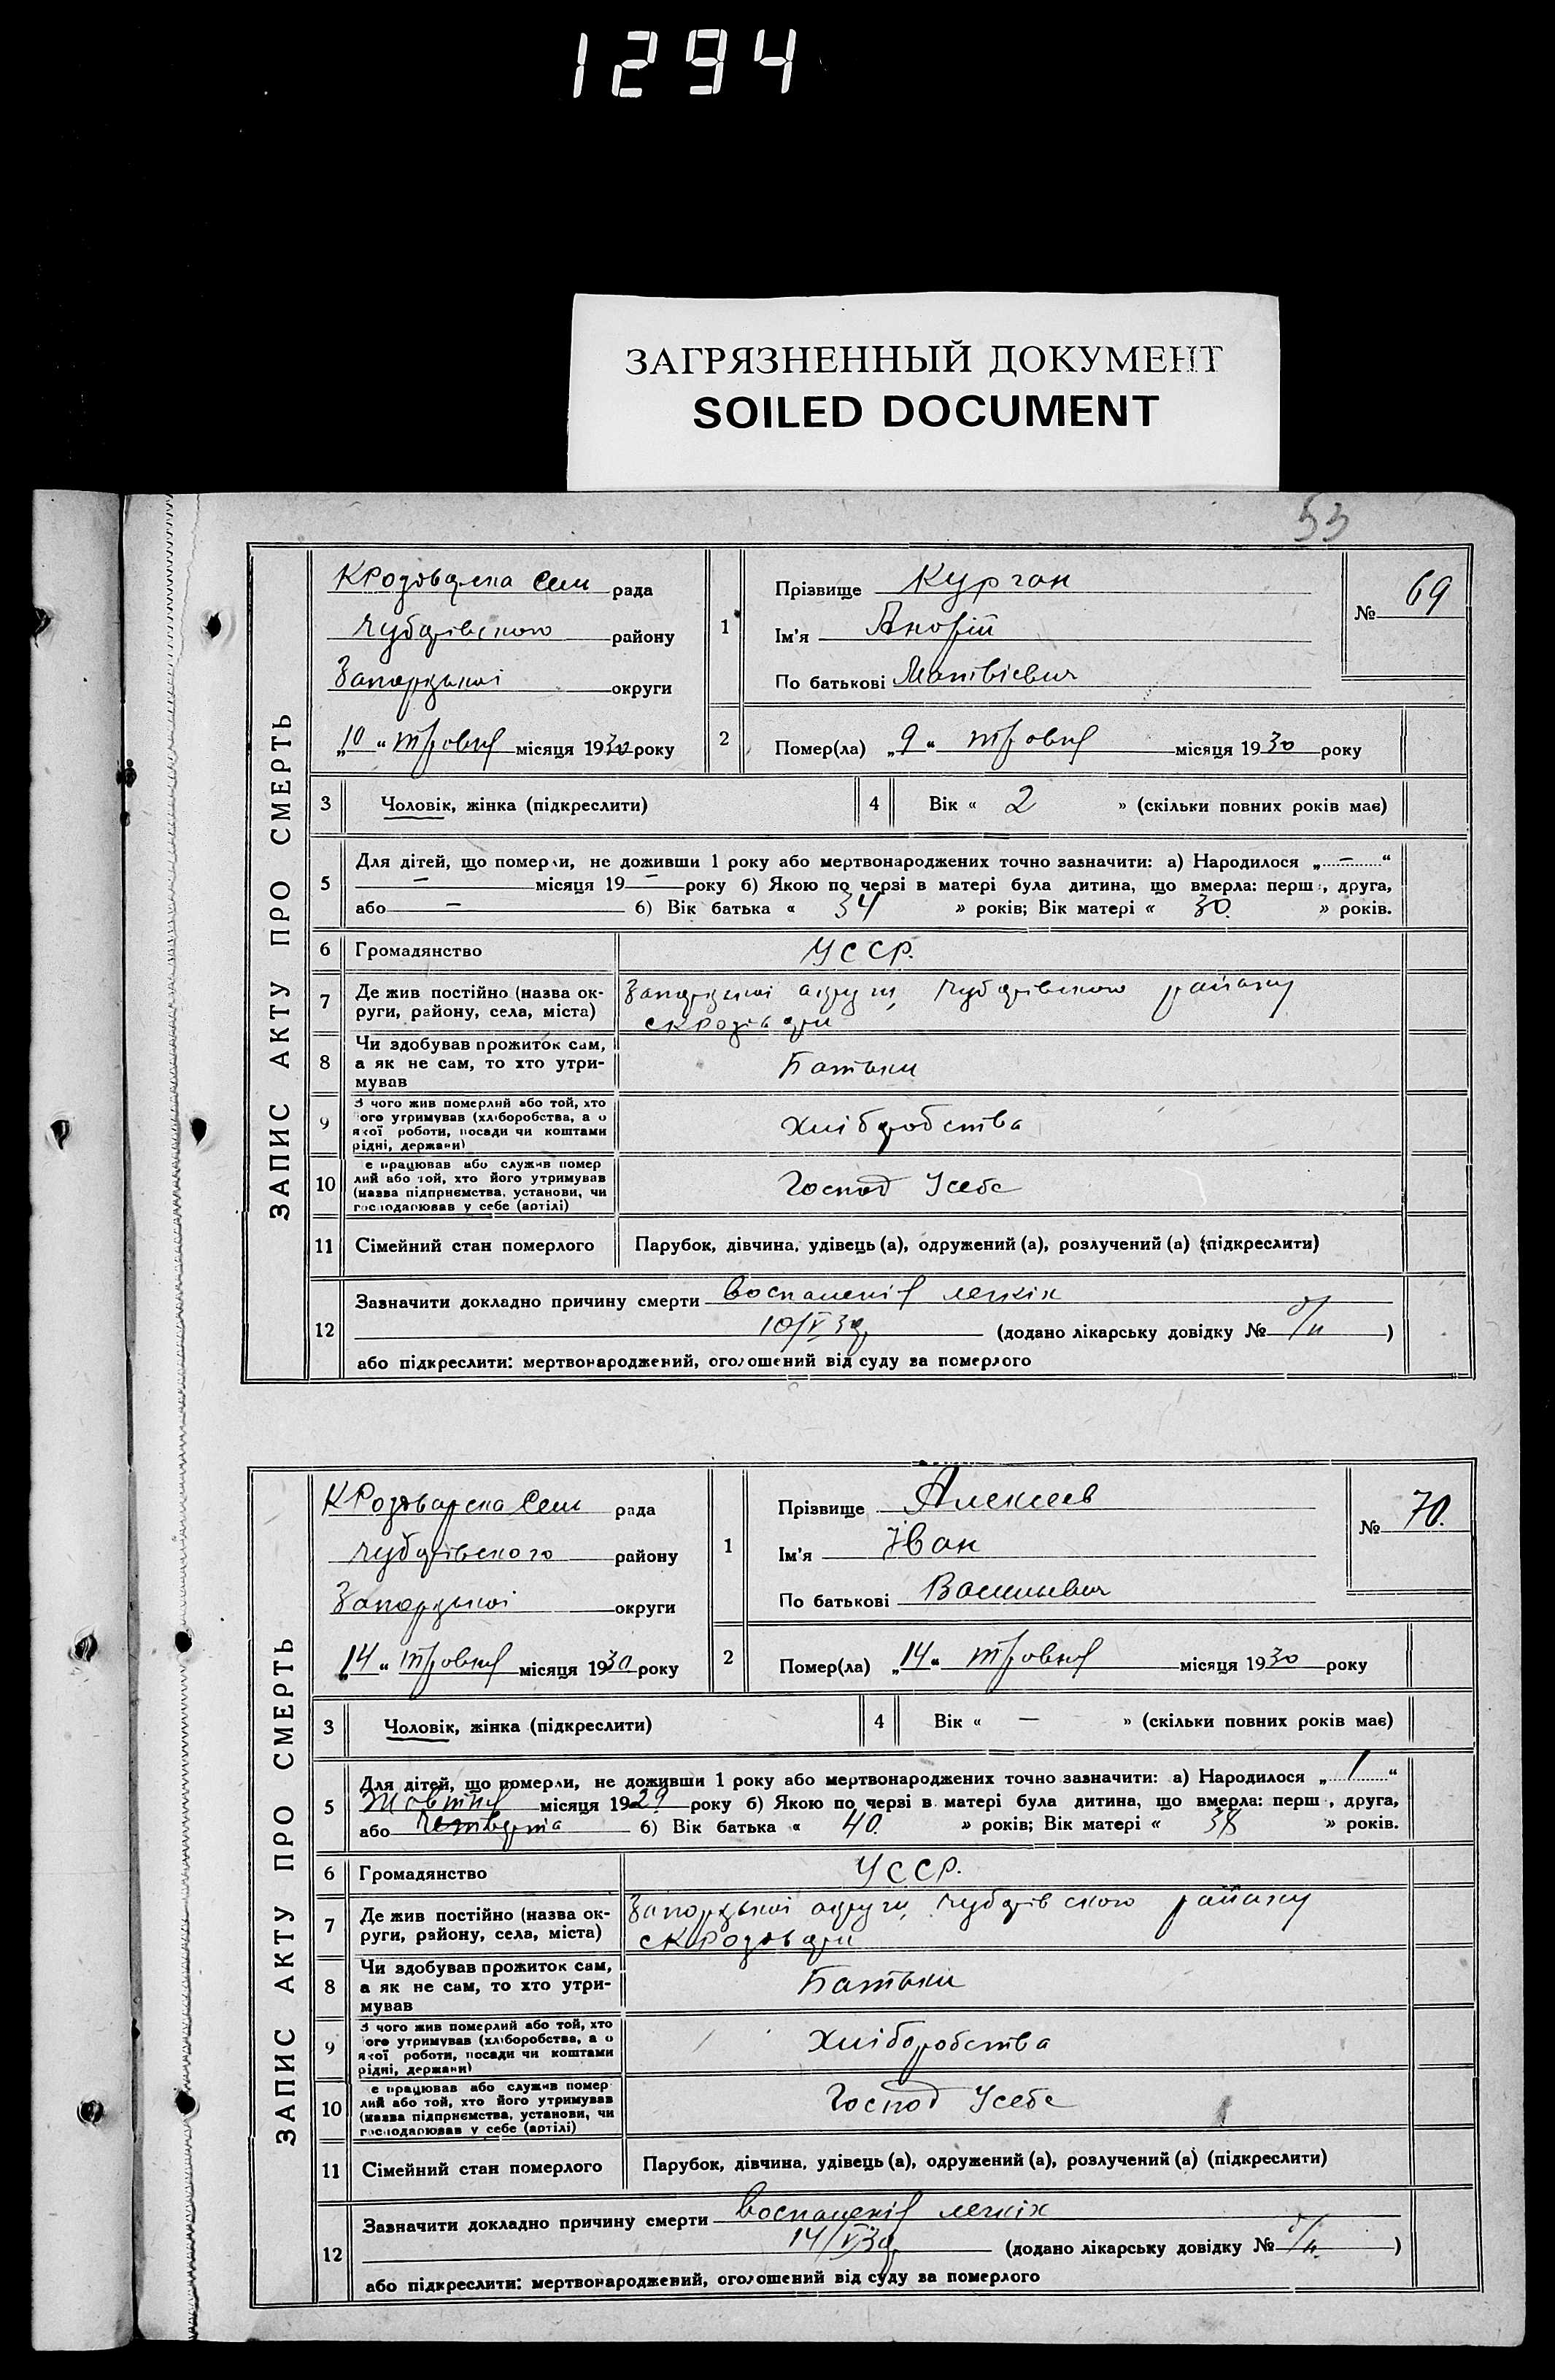 1294
ЗАГРЯЗНЕННЫЙ ДОКУМЕНТ
SOILED DOCUMENT
53
ЗАПИС АКТУ ПРО СМЕРТЬ
рада
Чубарівського району
Запорізької округи
„10“ травня місяця 1930 року
1
Прізвище Курган
Ім'я Андрій
По батькові Матвієвич
№ 69
2
Помер(ла) „9“ травня місяця 1930 року
3 Чоловік, жінка (підкреслити)
4 Вік « 2 » (скільки повних років має)
5
Для дітей, що померли, не доживши 1 року або мертвонароджених точно зазначити: а) Народилося „ — “
— місяця 19 — року б) Якою по черзі в матері була дитина, що вмерла: перш , друга,
або — б) Вік батька « 34 » років; Вік матері « 30 » років.
6 Громадянство УССР.
7 Де жив постійно (назва округи, району, села, міста) Запорізької округи, Чубарівського району
8 Чи здобував прожиток сам,
а як не сам, то хто утри-
мував
Батьки
9 З чого жив померлий або той, хто
ого утримував (хліборобства, а о
якої роботи, посади чи коштами
рідні, держави)
Хліборобства
10 е працював або служив помер
лий або той, хто його утримував
(назва підприємства, установи, чи
господарював у себе (артілі)
Господ Усебе
11 Сімейний стан померлого Парубок, дівчина, удівець (а), одружений (а), розлучений (а) (підкреслити)
12
Зазначити докладно причину смерти воспаленія легкіх
10/V 30 (додано лікарську довідку № б/н )
або підкреслити: мертвонароджений, оголошений від суду за померлого
ЗАПИС АКТУ ПРО СМЕРТЬ
рада
Чубарівського району
Запорізької округи
„14“ травня місяця 1930 року
1
Прізвище Алексеев
Ім'я Іван
По батькові Васильевич
№ 70.
2
Помер(ла) „14“ травня місяця 1930 року
3 Чоловік, жінка (підкреслити)
4 Вік « — » (скільки повних років має)
5
Для дітей, що померли, не доживши 1 року або мертвонароджених точно зазначити: а) Народилося „ 1 “
Жовтня місяця 1929 року б) Якою по черзі в матері була дитина, що вмерла: перш , друга,
або Четверта б) Вік батька « 40. » років; Вік матері « 38 » років.
6 Громадянство УССР.
7 Де жив постійно (назва округи, району, села, міста) Запорізької округи, Чубарівського району
8 Чи здобував прожиток сам,
а як не сам, то хто утри-
мував
Батьки
9 З чого жив померлий або той, хто
ого утримував (хліборобства, а о
якої роботи, посади чи коштами
рідні, держави)
Хліборобства
10 е працював або служив помер
лий або той, хто його утримував
(назва підприємства, установи, чи
господарював у себе (артілі)
Господ Усебе
11 Сімейний стан померлого Парубок, дівчина, удівець (а), одружений (а), розлучений (а) (підкреслити)
12
Зазначити докладно причину смерти воспаленія легкіх
14/V 30 (додано лікарську довідку № б/н. )
або підкреслити: мертвонароджений, оголошений від суду за померлого